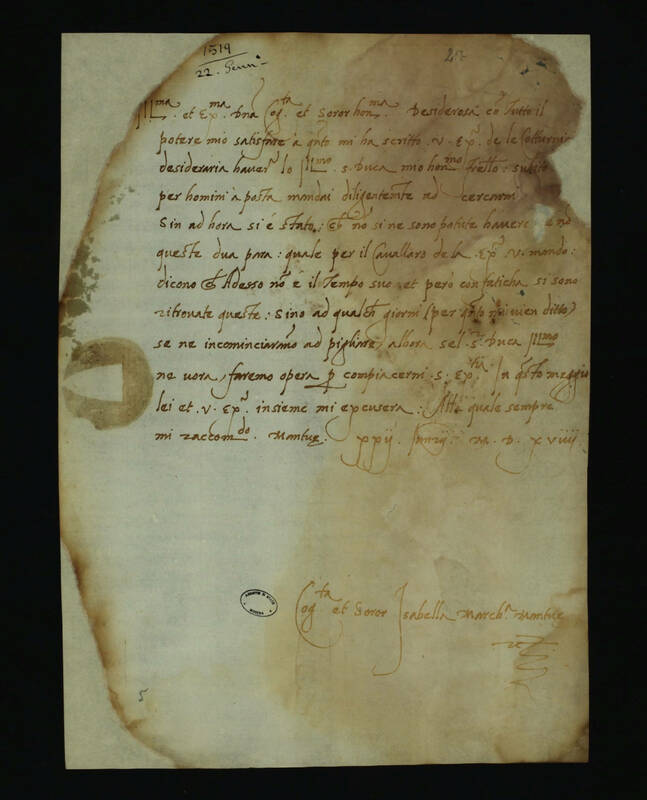 1519
22. Genn.
Ill.ma et Ex.ma Dna Cog.ta et Soror hon.ma Desiderosa cõ tutto il
potere mio satisfare à q̃nto mi ha scritto .v. Ex.a de le Cotturni
desideraria haver lo Ill.mo S. Duca mio hon.mo Frello: subito
per homini à posta mandai diligentemte ad cercarni
Sin ad hora si é stato: nõ si ne sono potute havere
queste dua para: quale per il Cavallaro de la Ex.a v. mando:
dicono Adesso nõ é il tempo suo et peró con faticha si sono
ritrovate queste: Sino ad qualch giorni (per q̃nto mi vien ditto)
se ne incominciarano ad pigliare, alhora sel S. Duca Ill.mo
ne vora, faremo opera p compiacerni .S. Ex.tia In q̃sto meggio
lei et .v. Ex.a insieme mi excusera: quale sempre
mi raccom.do Mantuę. xxij. Januarij. M. D. xviiij
Cog.ta et Soror Isabella March.a Mantuę
5